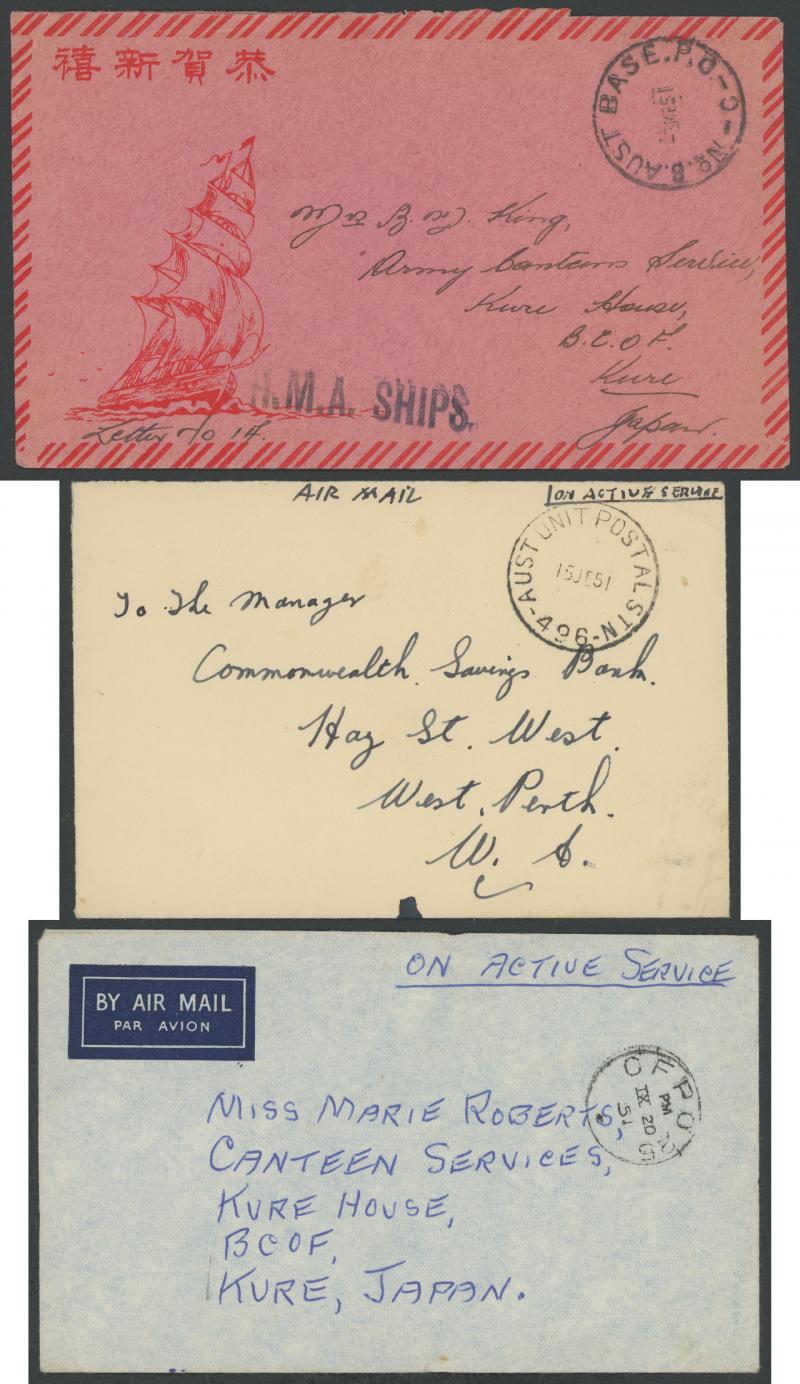 禧新賀恭
AUST BASE.P.O-
No.8.
King,
Army Canteens Service,
Kure House,
B.C.O.F.
Kure
Japan.
H.M.A. SHIPS.
Letter No 14.
AIR MAIL
ON ACTIVE SERVICE
AUST UNIT POSTAL STN
-496-
15JE51
To The Manager
Commonwealth Savings Bank.
Hay St. West.
West. Perth.
W. A.
ON ACTIVE SERVICE
BY AIR MAIL
PAR AVION
CFPO
PM
IX 20
51
MISS MARIE ROBERTS,
CANTEEN SERVICES,
KURE HOUSE,
BCOF,
KURE, JAPAN.